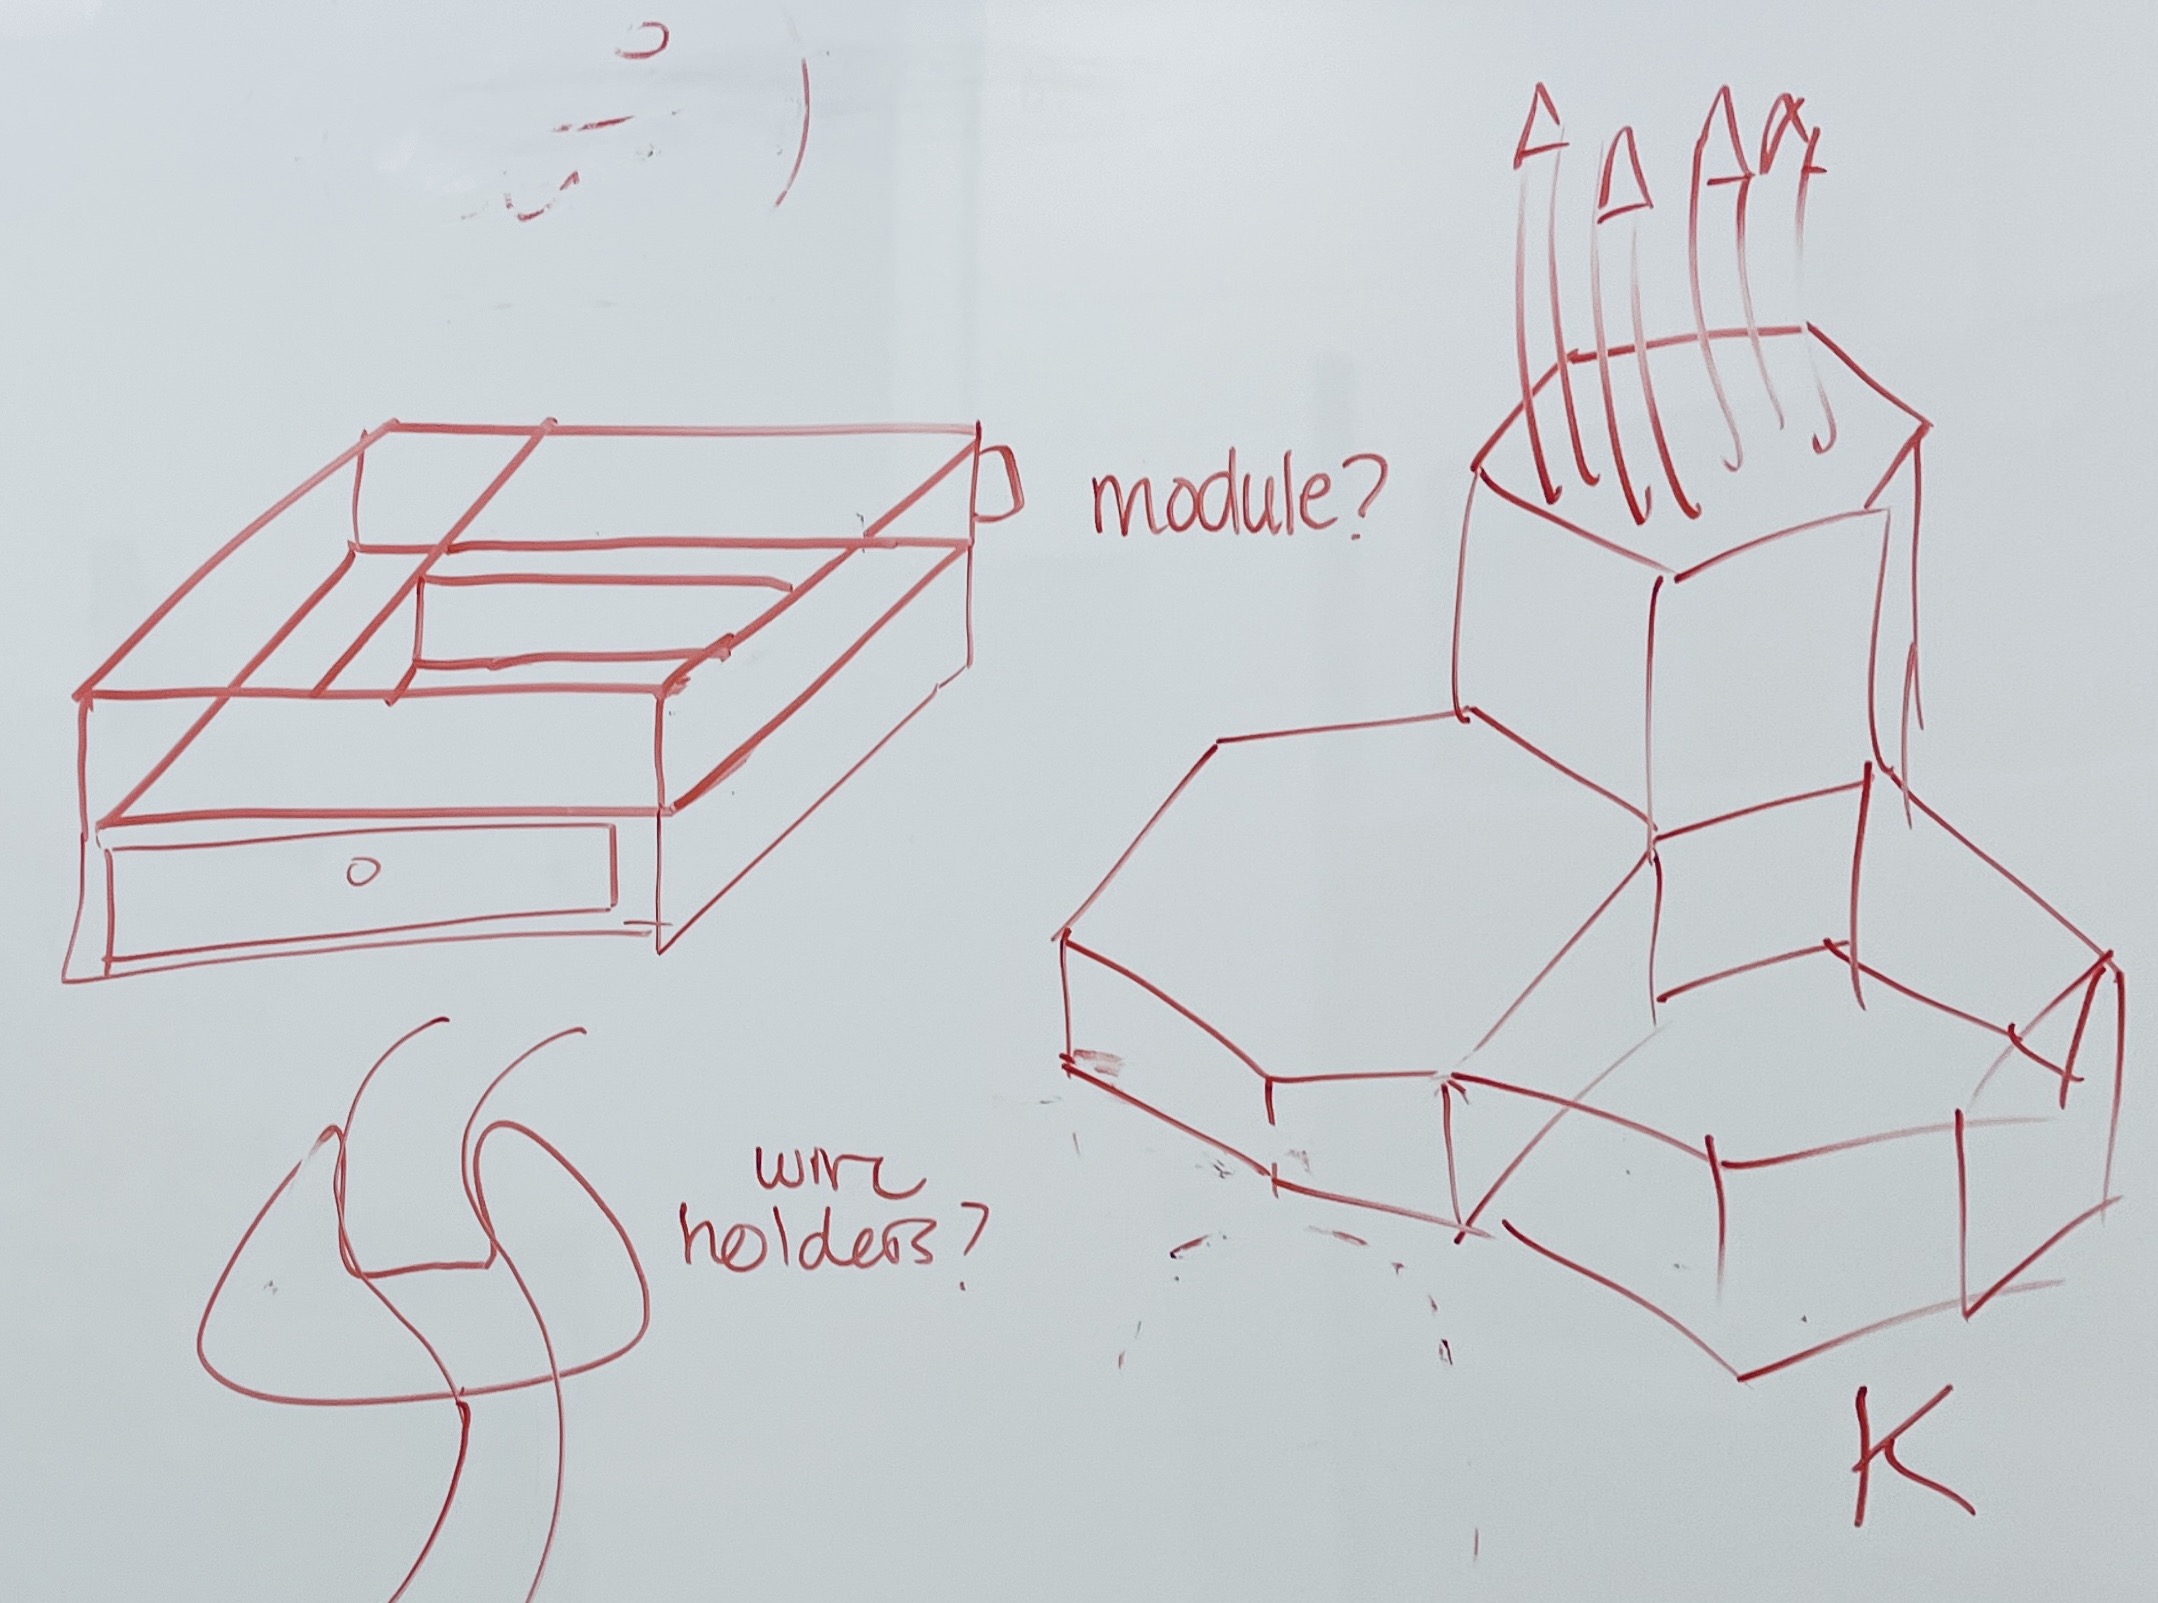 module?
wire
holders?
K